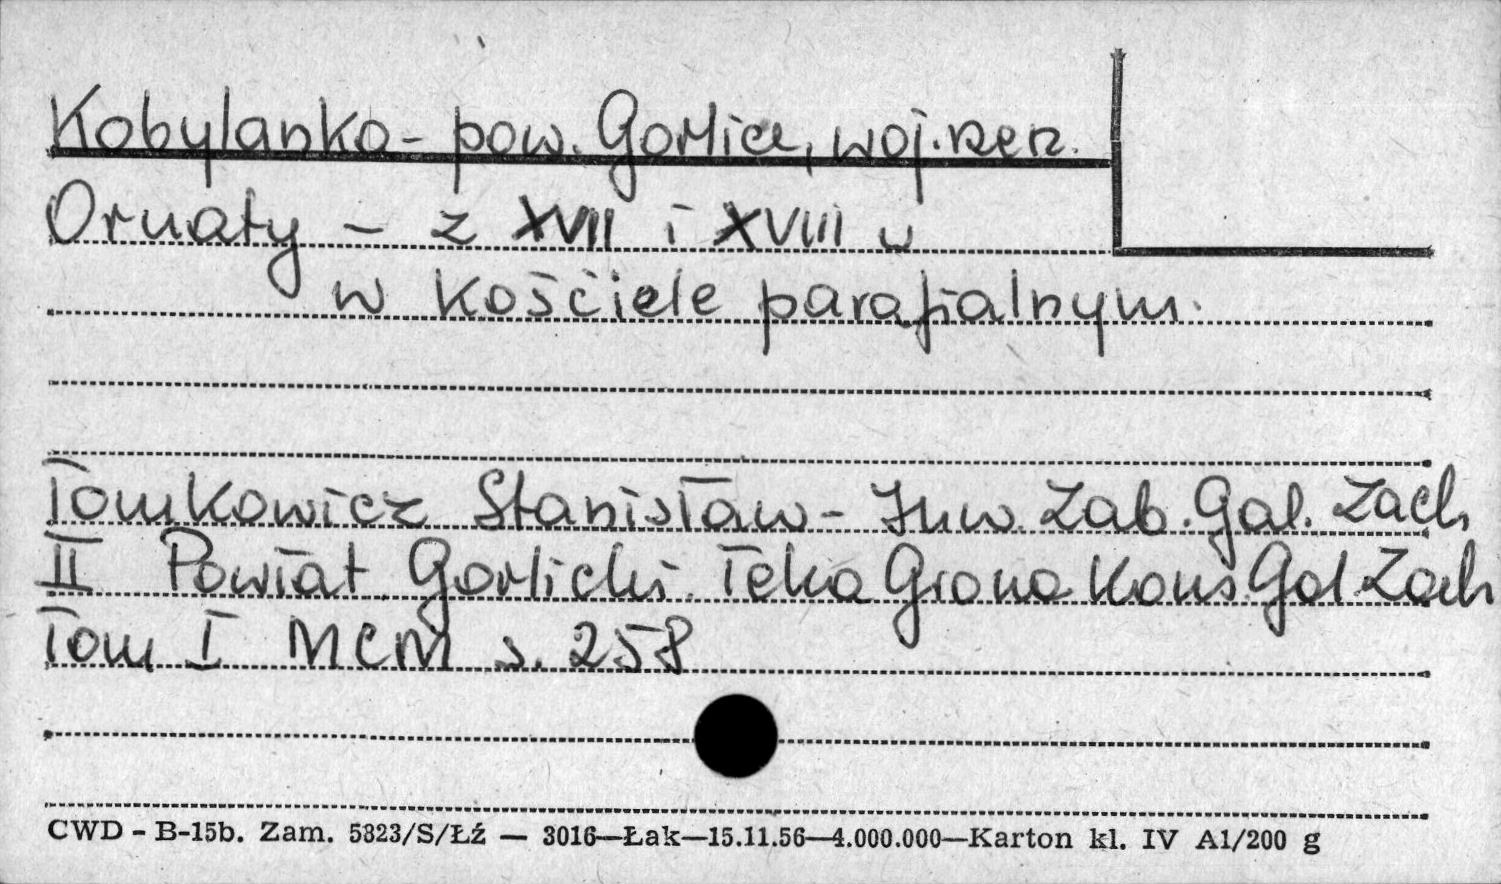 Kobylanka - pow. Gorlice, woj. rzesz.
Ornaty - z XVII i XVIII w
w kościele parafialnym.
Tomkowicz Stanisław - Inw. Zab. Gal. Zach
II Powiat Gorlicki. Teka Grona Kons Gal Zach
Tom I MCM s. 258
CWD - B-15b. Zam. 5823/S/Łź — 3016—Łak—15.11.56—4.000.000—Karton kl. IV A1/200 g